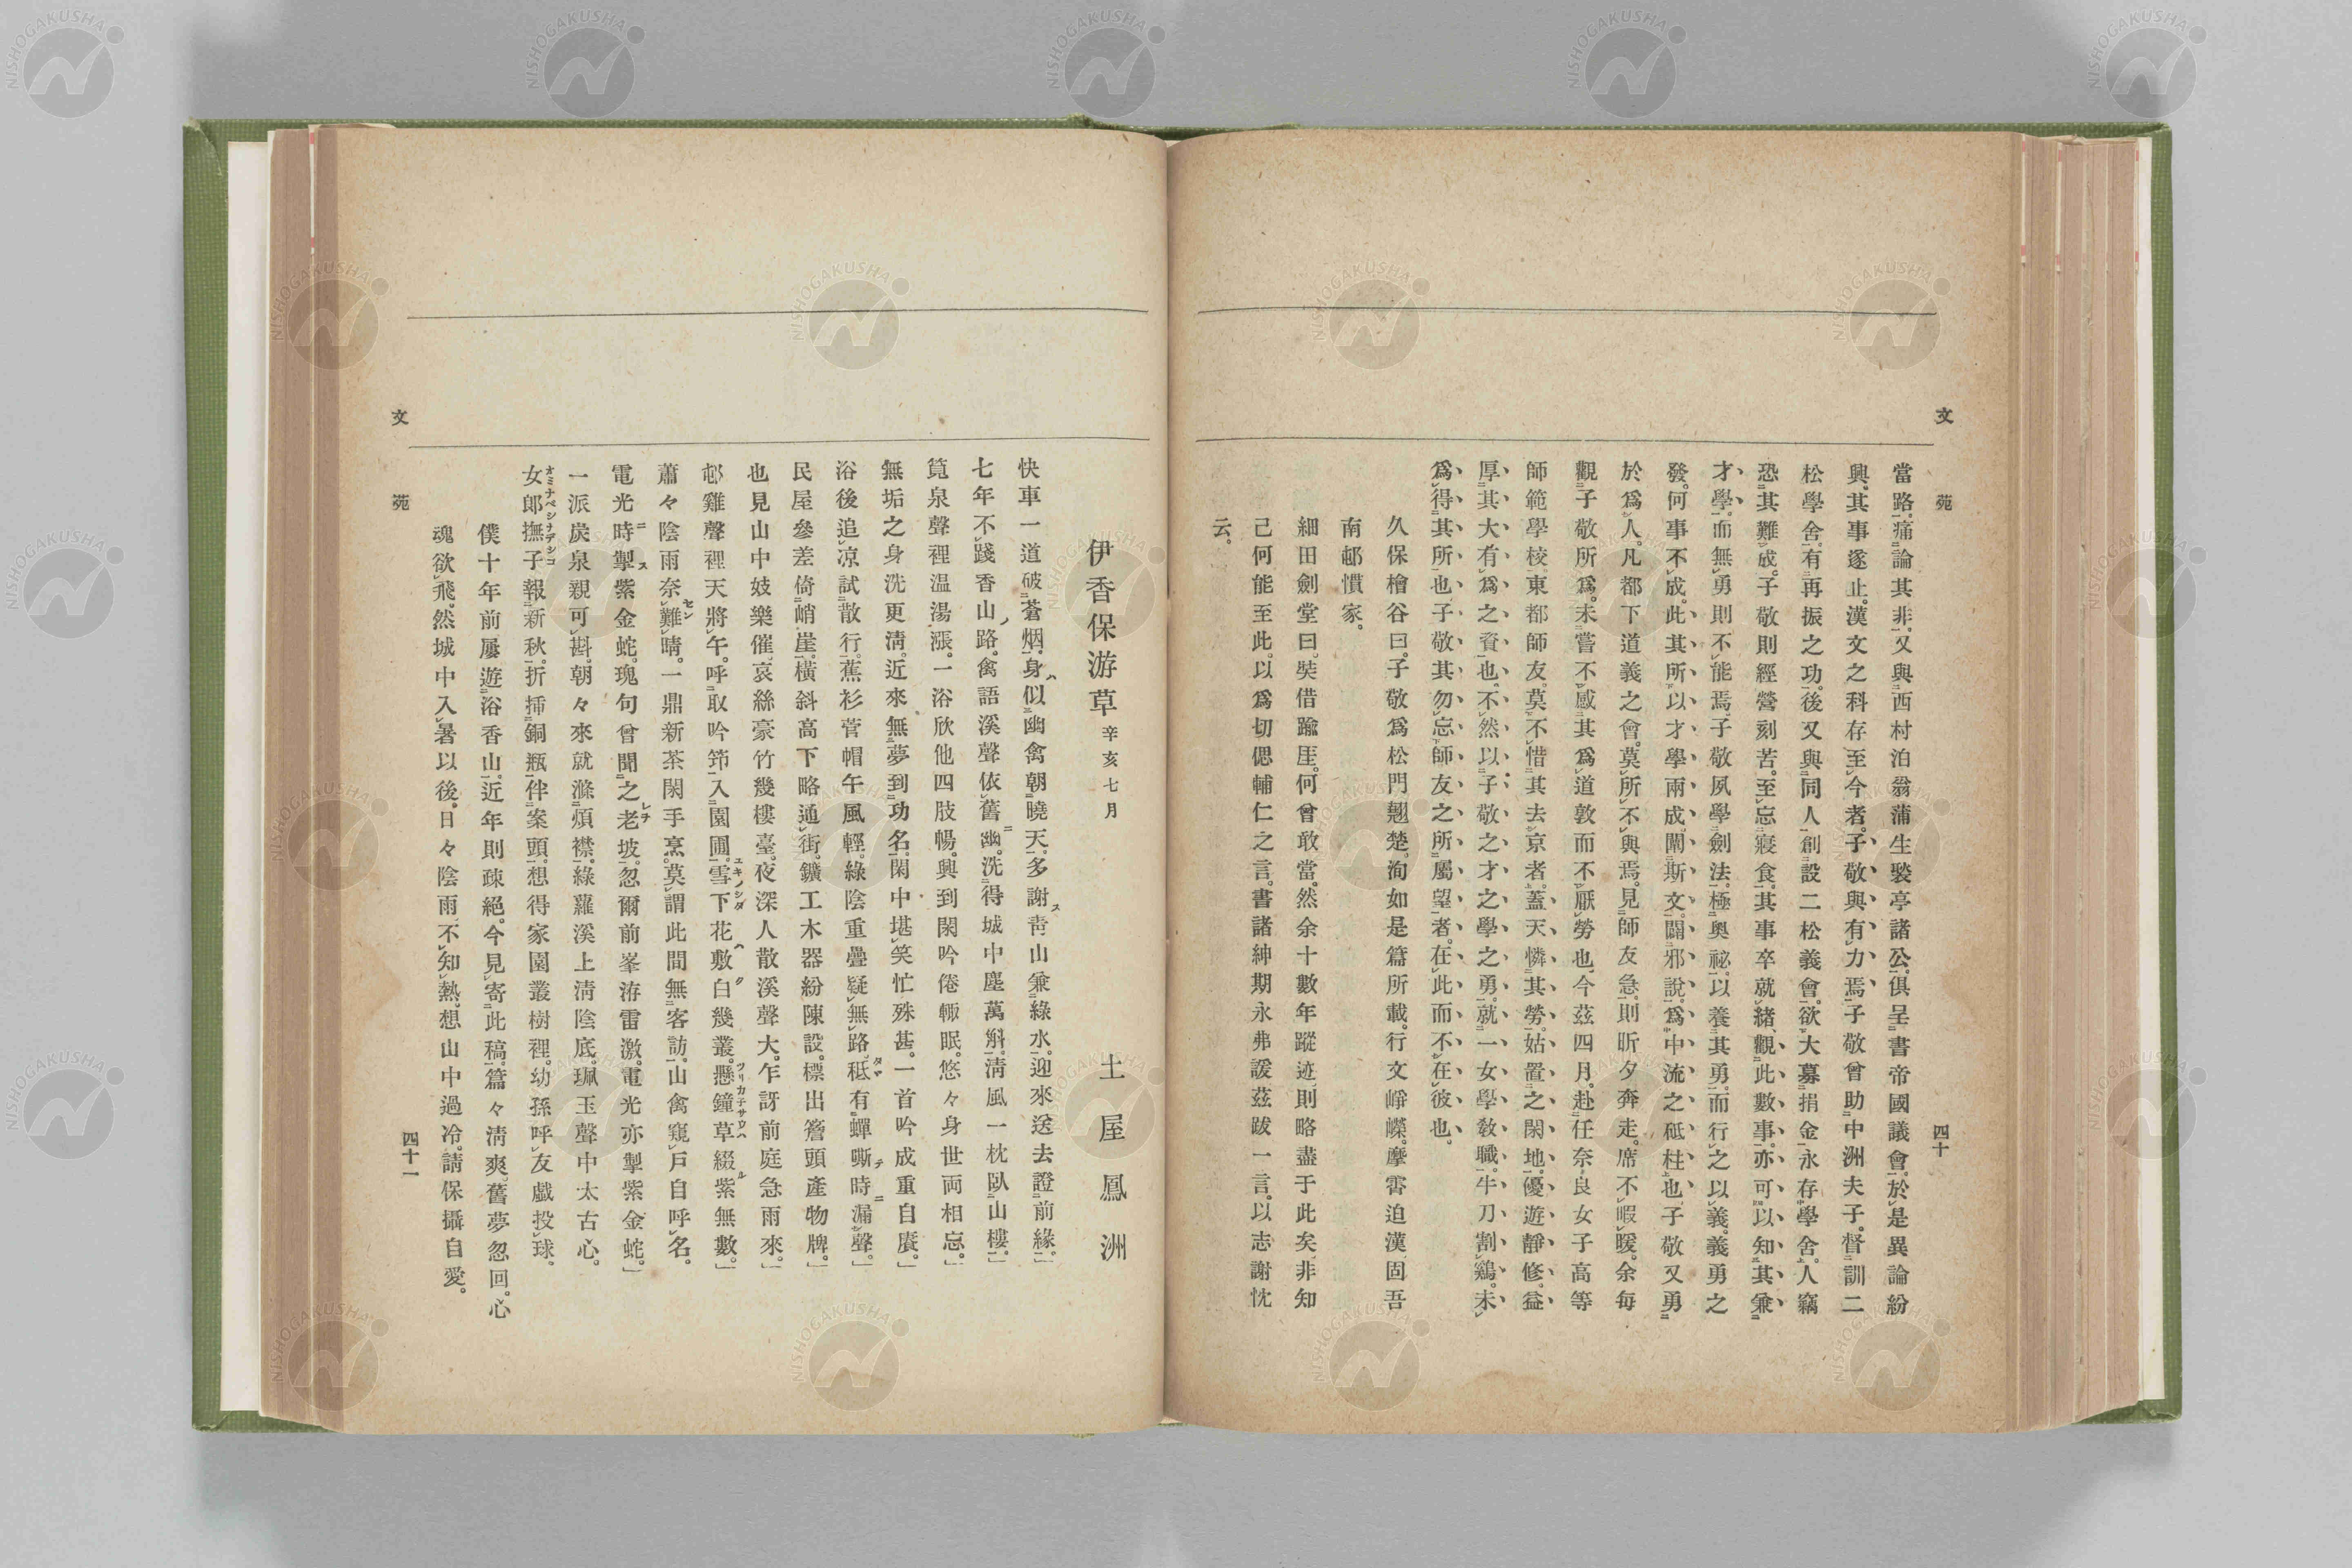 文苑
四十
當路。痛論其非。又與西村泊翁蒲生褧亭諸公。俱呈書帝國議會。於是異論紛
興。其事遂止。漢文之科存至今者。子敬與有力焉。子敬曾助中洲夫子。督訓二
松學舍。有再振之功。後又與同人創設二松義會。欲大募捐金永存學舍。人竊
恐其難成。子敬則經營刻苦。至忘寢食。其事卒就緒。觀此數事。亦可以知其兼
才學。而無勇則不能焉。子敬夙學劍法。極奧祕。以養其勇。而行之以義。義勇之
發。何事不成。此其所以才學兩成。闡斯文。闢邪說。爲中流之砥柱也。子敬又勇
於爲人。凡都下道義之會。莫所不與焉。見師友急。則昕夕奔走。席不暇暖。余每
觀子敬所爲。未嘗不感其爲道敦而不厭勞也。今茲四月。赴任奈良女子高等
師範學校。東都師友。莫不惜其去京者。蓋天憐其勞。姑置之閑地。優遊靜修。益
厚其大有爲之資也。不然以子敬之才之學之勇。就一女學敎職。牛刀割鷄。未
爲得其所也。子敬其勿忘師友之所屬望者。在此而不在彼也。
久保檜谷曰。子敬爲松門翹楚。洵如是篇所載。行文崢嶸。摩審迫漢。固吾
南邨慣家。
細田劍堂曰。奘借踰厓。何曾敢當。然余十數年蹤迹。則略盡于此矣。非知
己何能至此。以爲切偲輔仁之言。書諸紳期永弗諼茲跋一言。以志謝忱
云。
伊香保游草 辛亥七月 土屋鳳洲
快車一道破蒼烟。身ハ似幽禽朝曉天。多謝ス靑山兼綠水。迎來送去證前緣。」
七年不踐香山ノ路。禽語溪聲依舊ニ幽。洗得城中塵萬斛。淸風一枕臥山樓。」
筧泉聲裡温湯漲。一浴欣他四肢暢。興到閑吟倦輙眠。悠々身世両相忘。」
無垢之身洗更淸。近來無夢到功名。閑中堪笑忙殊甚。一首吟成重自賡。」
浴後追凉試散行。蕉衫菅帽午風輕。綠陰重疊疑無路。秪タヾ有蟬嘶テ時ニ漏聲。」
民屋參差倚峭崖。横斜高下略通街。鑛工木器紛陳設。標出簷頭產物牌。」
也見山中妓樂催。哀絲豪竹幾樓臺。夜深人散溪聲大。乍訝前庭急雨來。」
邨雞聲裡天將午。呼取吟筇入園圃。雪下花ユキノシタハ敷ク白幾叢。懸鐘草ツリガネサウハ綴ル紫無數。」
蕭々陰雨奈難セン晴。一鼎新茶閑手烹。莫謂此間無客訪。山禽窺戶自呼名。
電光時ニ掣ス紫金蛇。瑰句曾聞之老坡。忽爾前峯洊雷激。電光亦掣紫金蛇。」
一派炭泉親可斟。朝々來就滌煩襟。綠蘿溪上淸陰底。珮玉聲中太古心。
女郎オミナベシ撫子ナデシコ報新秋。折揷銅瓶伴案頭。想得家園叢樹裡。幼孫呼友戲投球。
僕十年前屢遊浴香山。近年則疎絕。今見寄此稿。篇々淸爽。舊夢忽回。心
魂欲飛。然城中入暑以後。日々陰雨。不知熱。想山中過冷。請保攝自愛。
文苑
四十一